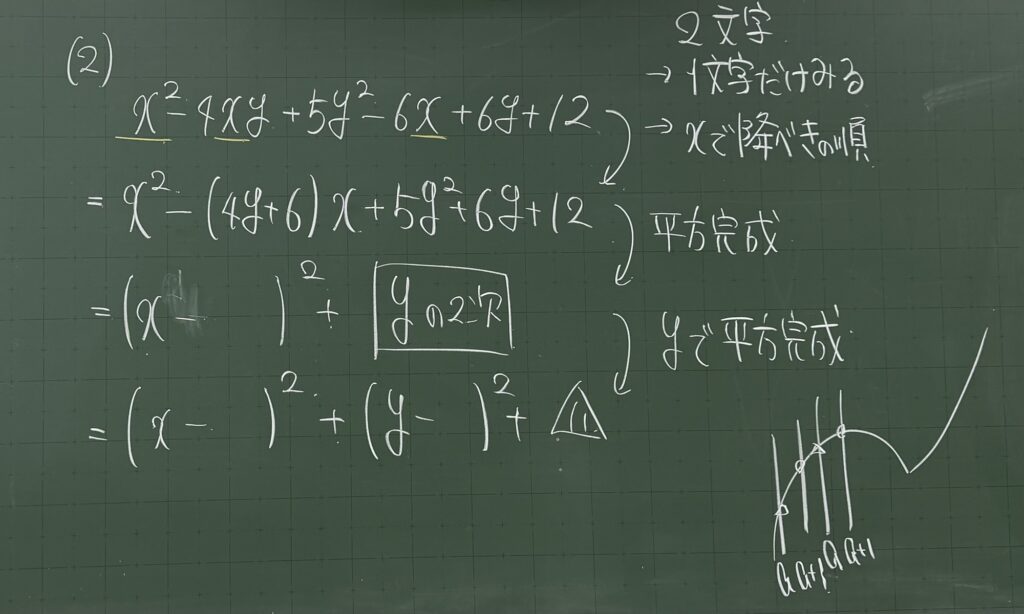 (2)
x² - 4xy + 5y² - 6x + 6y + 12
= x² - (4y+6)x + 5y² + 6y + 12
= (x - )² + yの2次
= (x - )² + (y - )² +
2文字
→ 1文字だけみる
→ xで降べきの順
平方完成
yで平方完成
a a+1 a a+1